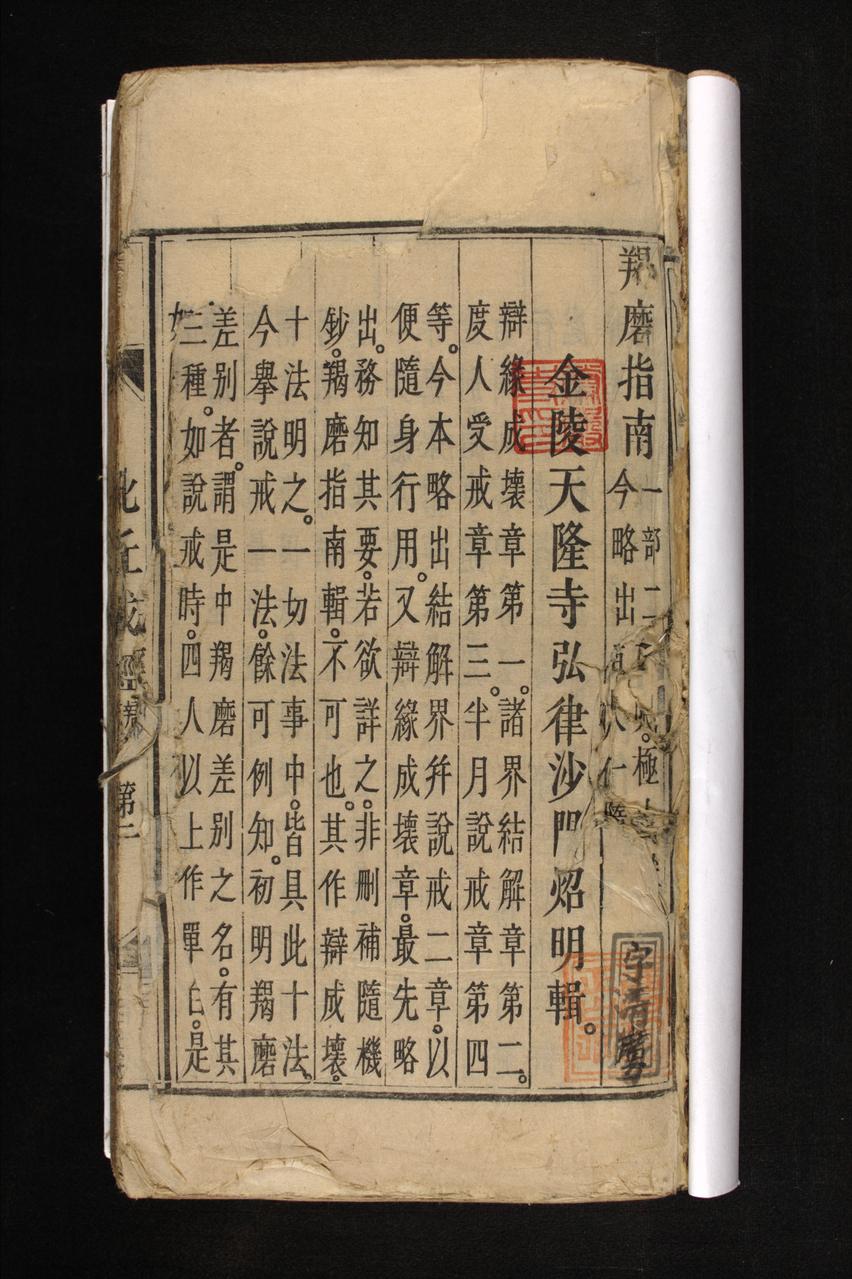 羯磨指南
一部二極
今略出
金陵天隆寺弘律沙門炤明輯。
辯緣成壞章第一。諸界結解章第二。
度人受戒章第三。半月說戒章第四
等。今本略出結解界幷說戒二章。以
便隨身行用。又辯緣成壞章。最先略
出。務知其要。若欲詳之。非刪補隨機
鈔。羯磨指南輯。不可也。其作辯成壞。
十法明之。一切法事中。皆具此十法。
今舉說戒一法。餘可例知。初明羯磨
差別者。謂是中羯磨差別之名。有其
三種。如說戒時。四人以上作單白。是
比丘戒經